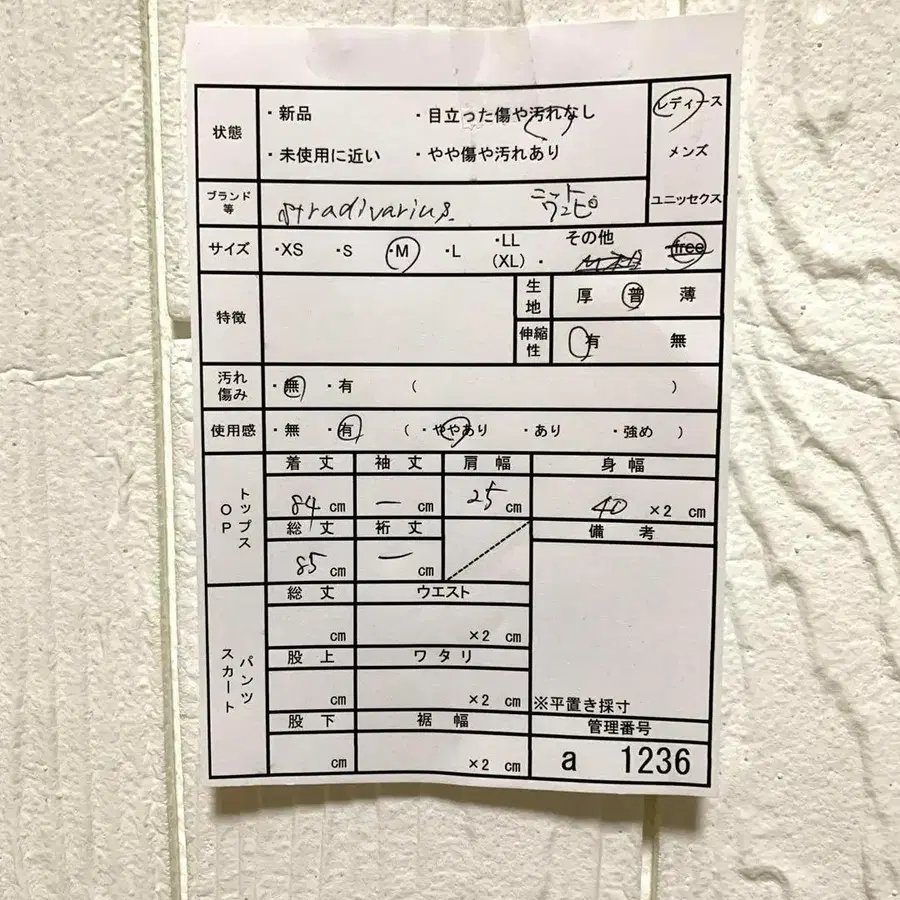 状態 ・新品 ・目立った傷や汚れなし レディース
・未使用に近い ・やや傷や汚れあり メンズ
ブランド等 stradivarius. ニットワンピ ユニセックス
サイズ ・XS ・S ・M ・L ・LL(XL) ・その他 free
特徴 生地 厚 普 薄
伸縮性 有 無
汚れ傷み ・無 ・有 ( )
使用感 ・無 ・有 (・ややあり ・あり ・強め )
トップス OP 着丈 袖丈 肩幅 身幅
84 cm ー cm 25 cm 40 ×2 cm
総丈 裄丈 備考
85 cm ー cm
パンツ スカート 総丈 ウエスト
cm ×2 cm
股上 ワタリ
cm ×2 cm ※平置き採寸
股下 裾幅 管理番号
cm ×2 cm a 1236